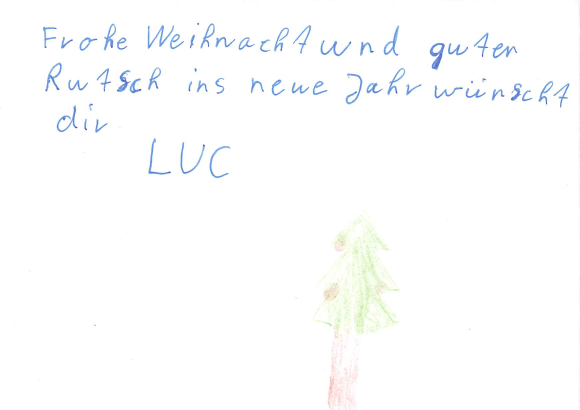 Frohe Weihnacht und guten
Rutsch ins neue Jahr wünscht
dir
LUC